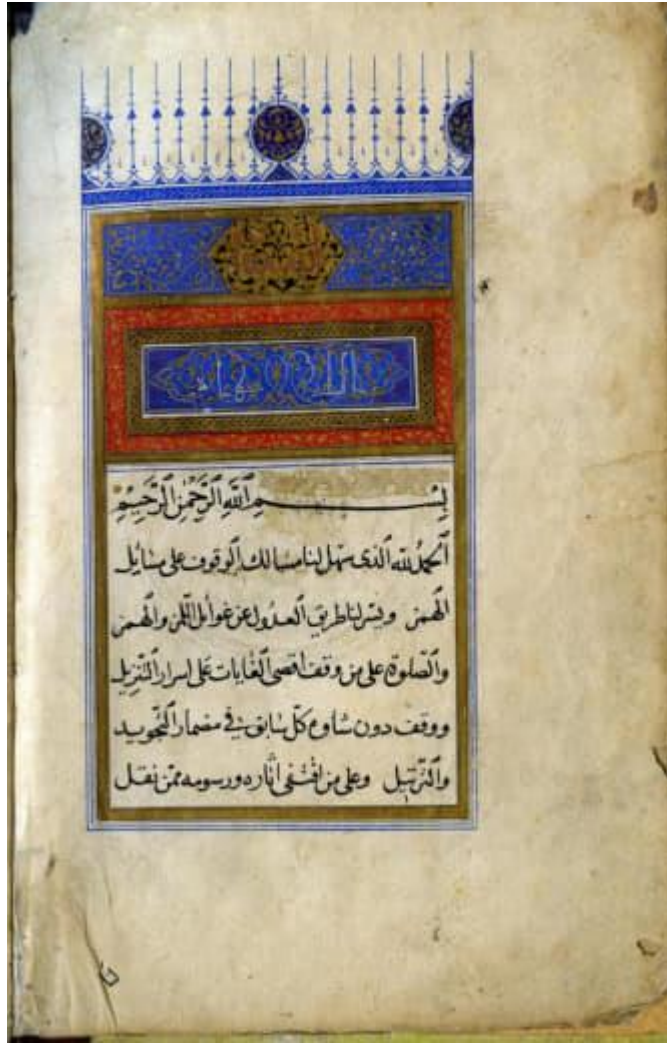 بِسْمِ ٱللَّهِ ٱلرَّحْمٰنِ ٱلرَّحِيْمِ
ٱلحمدُ لله ٱلذى سهل لنا مسالك ٱلوقوف على مسايل
ٱلهمز ويسر لنا طريق ٱلعدول عن غوايل ٱللمز وٱلهمز
وٱلصلوة على من وقف اقصى ٱلغايات على اسرار ٱلتنزيل
ووقف دون شاوه كل سابق فى مضمار ٱلتجويد
وٱلترتيل وعلى من اقتفى اثاره ورسومه ممن نقل